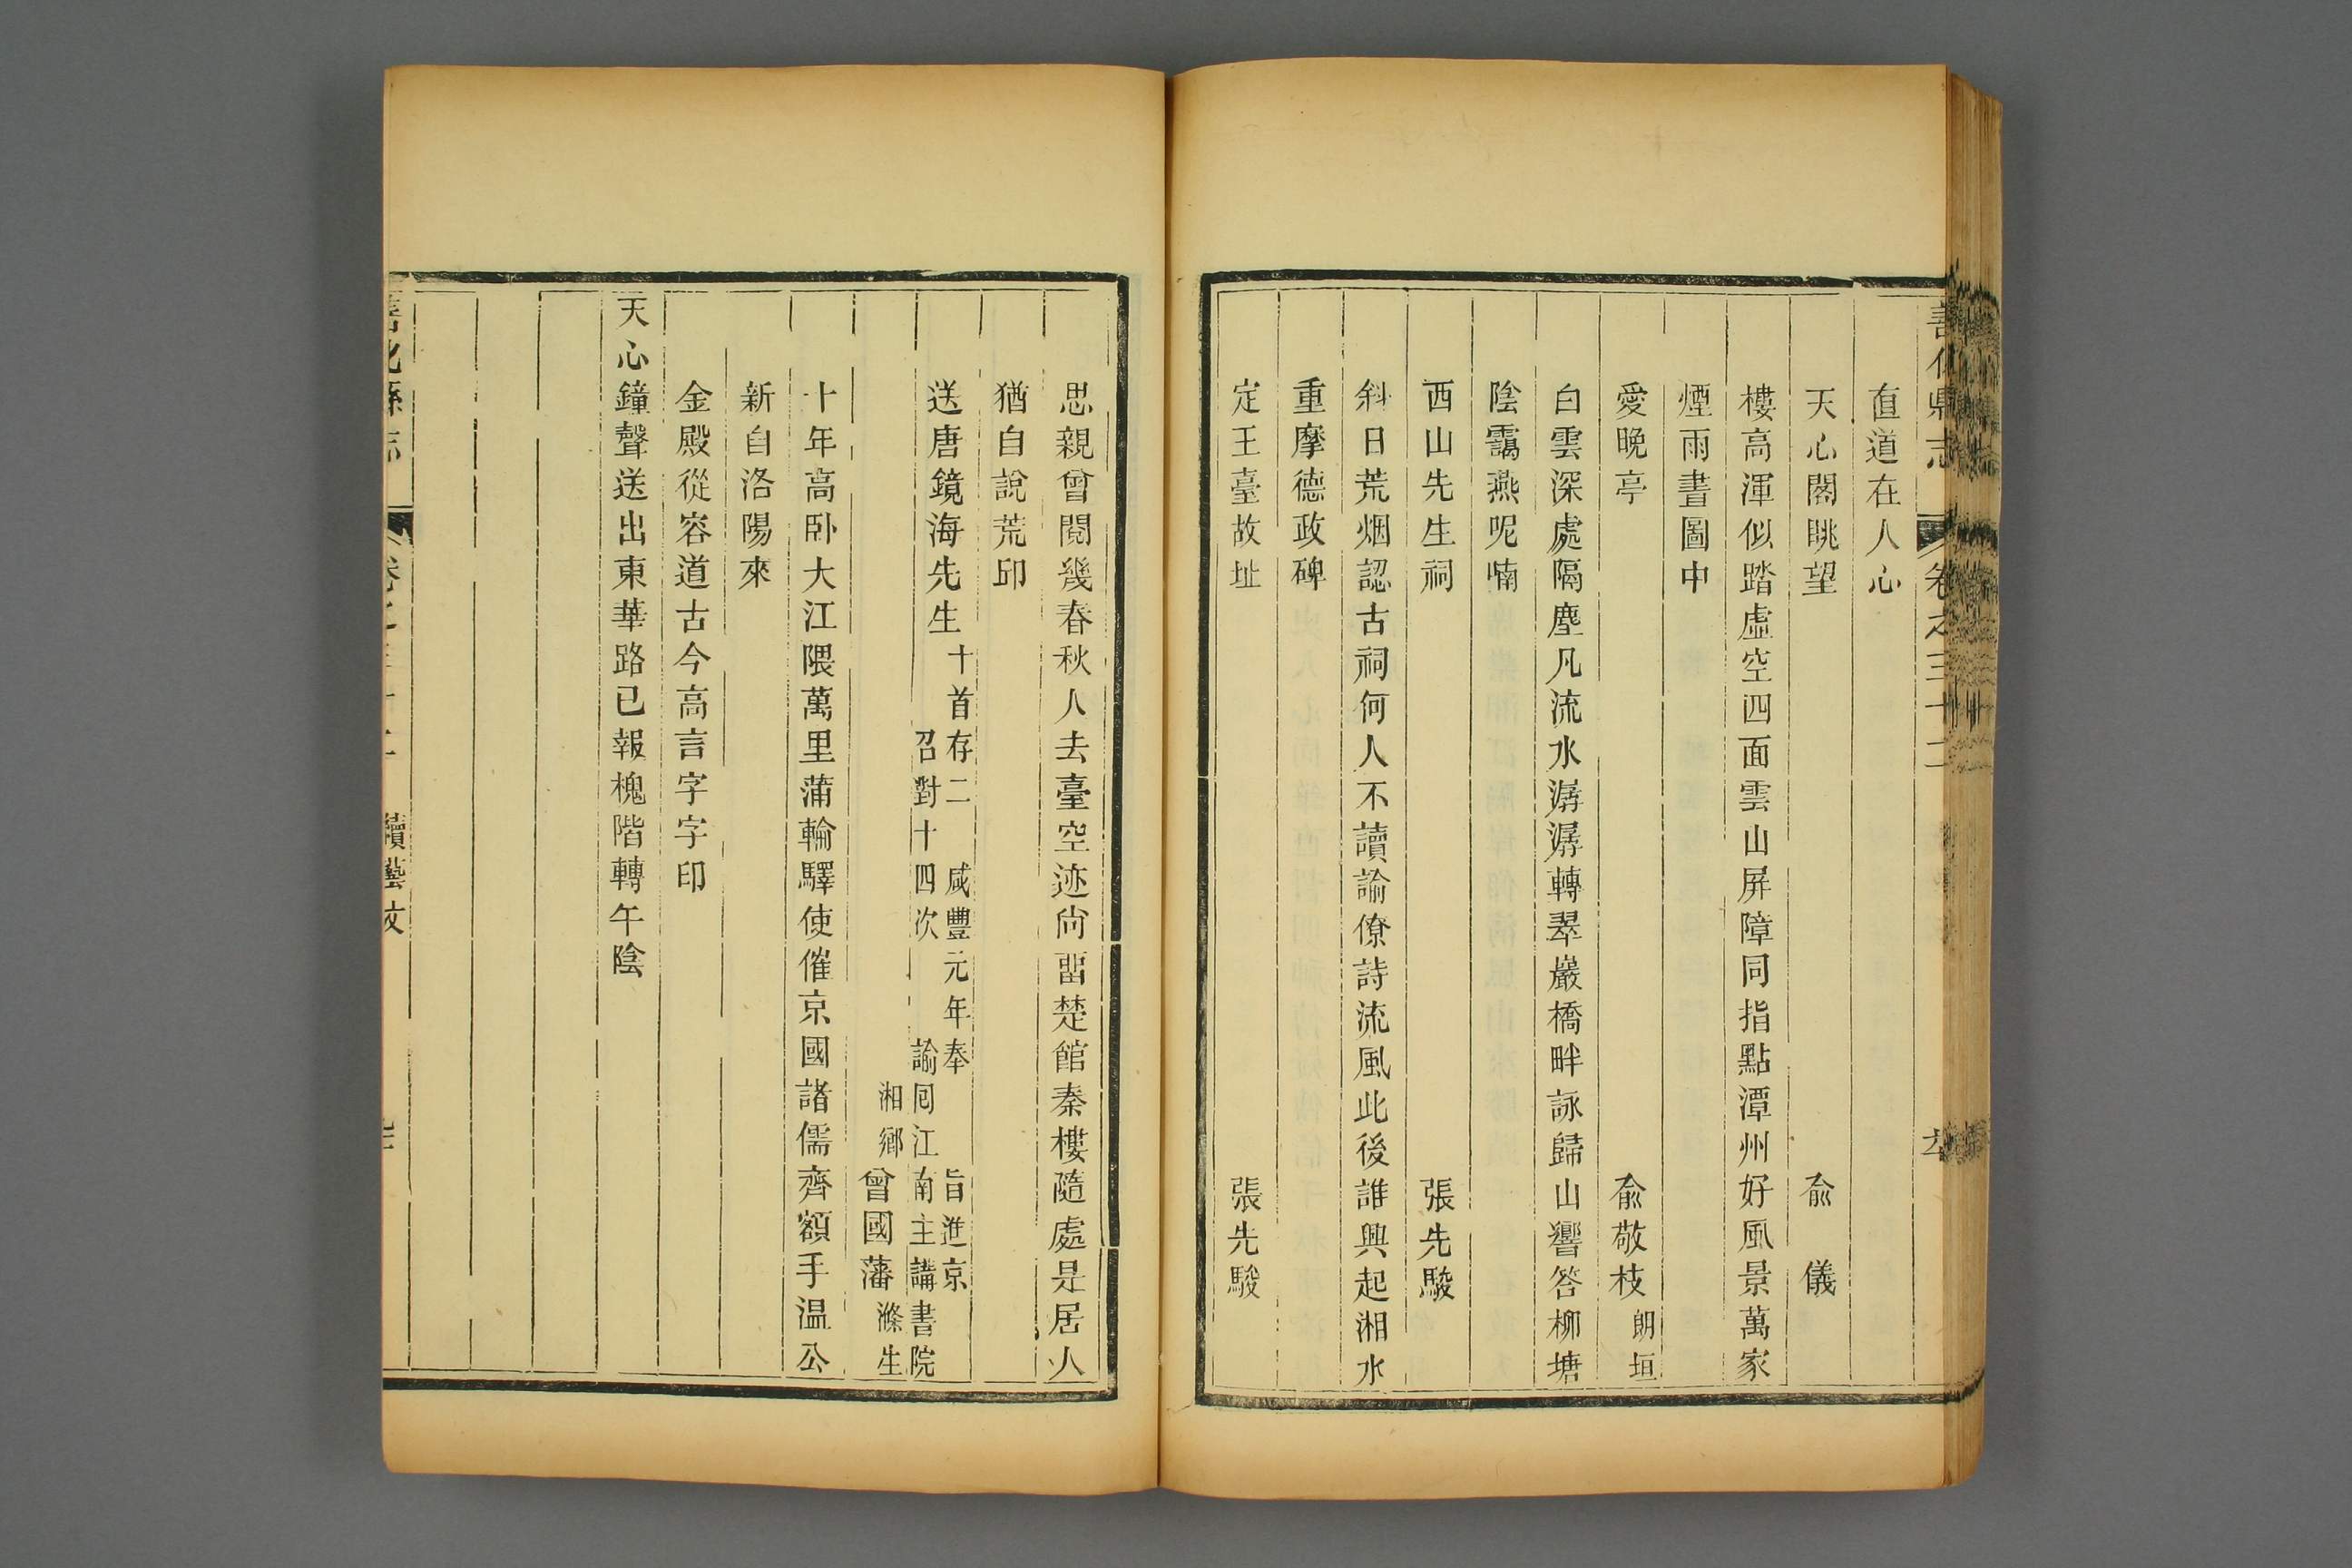 善化縣志 卷之三十二
直道在人心
天心閣眺望 俞 儀
樓高渾似踏虛空四面雲山屏障同指點潭州好風景萬家
煙雨畫圖中
愛晚亭 俞敬枝朗垣
白雲深處隔塵凡流水潺潺轉翠巖橋畔詠歸山響答柳塘
陰靄燕呢喃
西山先生祠 張先駿
斜日荒烟認古祠何人不讀諭僚詩流風此後誰興起湘水
重摩德政碑
定王臺故址 張先駿
思親曾閱幾春秋人去臺空迹尙畱楚館秦樓隨處是居人
猶自說荒邱
送唐鏡海先生 十首存二 咸豐元年奉 旨進京
召對十四次 諭囘江南主講書院
湘鄉曾國藩滌生
十年高卧大江隈萬里蒲輪驛使催京國諸儒齊額手温公
新自洛陽來
金殿從容道古今高言字字印
天心鐘聲送出東華路已報槐階轉午陰
善化縣志 卷之三十二 續藝文